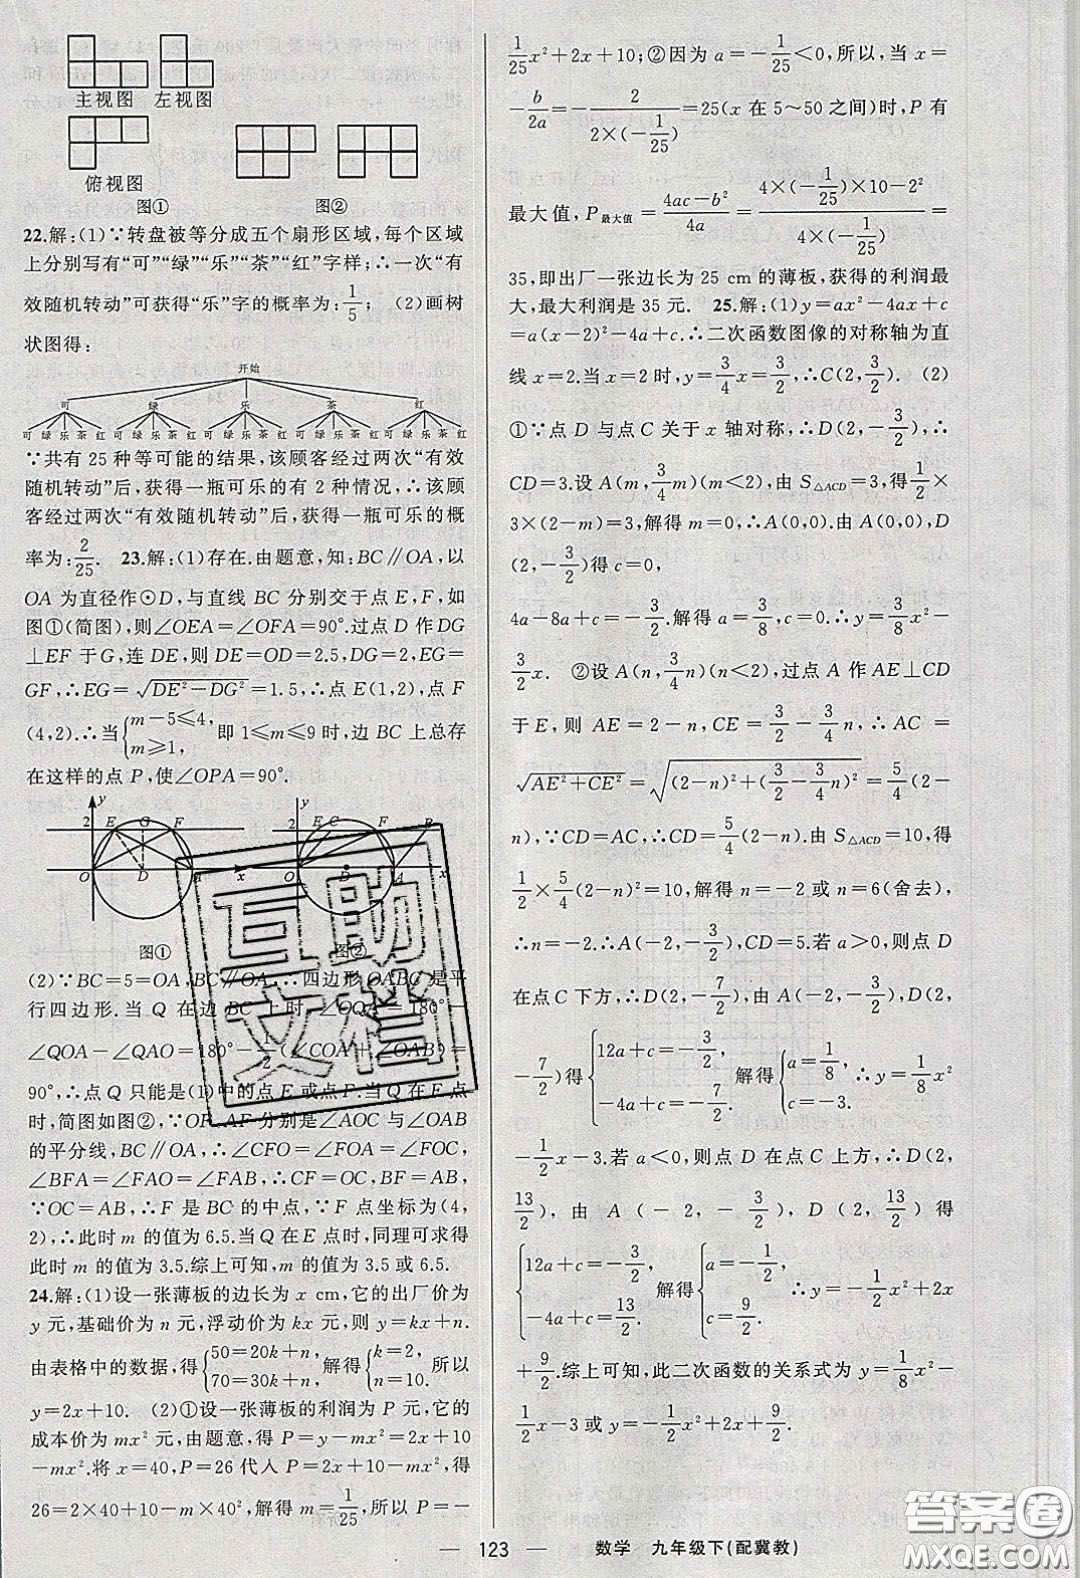 主视图 左视图
俯视图
图① 图②
22.解:(1)∵转盘被等分成五个扇形区域,每个区域
上分别写有“可”“绿”“乐”“茶”“红”字样;∴一次“有
效随机转动”可获得“乐”字的概率为:1/5; (2)画树
状图得:
开始
可 绿 乐 茶 红
可 绿 乐 茶 红 可 绿 乐 茶 红 可 绿 乐 茶 红 可 绿 乐 茶 红 可 绿 乐 茶 红
∵共有 25 种等可能的结果,该顾客经过两次“有效
随机转动”后,获得一瓶可乐的有 2 种情况,∴该顾
客经过两次“有效随机转动”后,获得一瓶可乐的概
率为:2/25. 23.解:(1)存在.由题意,知:BC∥OA,以
OA 为直径作⊙D,与直线 BC 分别交于点 E,F,如
图①(简图),则∠OEA=∠OFA=90°.过点 D 作 DG
⊥EF 于 G,连 DE,则 DE=OD=2.5,DG=2,EG=
GF,∴EG=√(DE²−DG²)=1.5,∴点 E(1,2),点 F
(4,2).∴当{m−5≤4, m≥1, 即 1≤m≤9 时,边 BC 上总存
在这样的点 P,使∠OPA=90°.
y 2 E G F O D A x
y 2 E C F B O D A x
图① 图②
(2)∵BC=5=OA,BC∥OA,∴四边形 OABC 是平
行四边形.当 Q 在边 BC 上时,∠OQA=180°−
∠QOA−∠QAO=180°−1/2(∠COA+∠OAB)=
90°,∴点 Q 只能是(1)中的点 E 或点 F.当 Q 在 F 点
时,简图如图②,∵OF,AF 分别是∠AOC 与∠OAB
的平分线,BC∥OA,∴∠CFO=∠FOA=∠FOC,
∠BFA=∠FAO=∠FAB,∴CF=OC,BF=AB,
∵OC=AB,∴F 是 BC 的中点,∵F 点坐标为(4,
2),∴此时 m 的值为 6.5.当 Q 在 E 点时,同理可求得
此时 m 的值为 3.5.综上可知,m 的值为 3.5 或 6.5.
24.解:(1)设一张薄板的边长为 x cm,它的出厂价为
y 元,基础价为 n 元,浮动价为 kx 元,则 y=kx+n.
由表格中的数据,得{50=20k+n, 70=30k+n, 解得{k=2, n=10, 所以
y=2x+10. (2)①设一张薄板的利润为 P 元,它的
成本价为 mx² 元,由题意,得 P=y−mx²=2x+10
−mx².将 x=40,P=26 代入 P=2x+10−mx²,得
26=2×40+10−m×40²,解得 m=1/25,所以 P=−
1/25x²+2x+10;②因为 a=−1/25<0,所以,当 x=
−b/2a=−2/(2×(−1/25))=25(x 在 5~50 之间)时,P 有
最大值,P最大值=(4ac−b²)/4a=(4×(−1/25)×10−2²)/(4×(−1/25))=
35,即出厂一张边长为 25 cm 的薄板,获得的利润最
大,最大利润是 35 元. 25.解:(1)y=ax²−4ax+c
=a(x−2)²−4a+c.∴二次函数图像的对称轴为直
线 x=2.当 x=2 时,y=3/4x=3/2,∴C(2,3/2). (2)
①∵点 D 与点 C 关于 x 轴对称,∴D(2,−3/2),∴
CD=3.设 A(m,3/4m)(m<2),由 S△ACD=3,得1/2×
3×(2−m)=3,解得 m=0,∴A(0,0).由 A(0,0),D
(2,−3/2)得 c=0,
4a−8a+c=−3/2.解得 a=3/8,c=0.∴y=3/8x²−
3/2x. ②设 A(n,3/4n)(n<2),过点 A 作 AE⊥CD
于 E,则 AE=2−n,CE=3/2−3/4n,∴AC=
√(AE²+CE²)=√((2−n)²+(3/2−3/4n)²)=5/4(2−
n),∵CD=AC,∴CD=5/4(2−n).由 S△ACD=10,得
1/2×5/4(2−n)²=10,解得 n=−2或 n=6(舍去),
∴n=−2.∴A(−2,−3/2),CD=5.若 a>0,则点 D
在点 C 下方,∴D(2,−7/2),由 A(−2,−3/2),D(2,
−7/2)得{12a+c=−3/2, −4a+c=−7/2. 解得{a=1/8, c=−3. ∴y=1/8x²−
1/2x−3.若 a<0,则点 D 在点 C 上方,∴D(2,
13/2),由 A(−2,−3/2),D(2,13/2)得
{12a+c=−3/2, −4a+c=13/2. 解得{a=−1/2, c=9/2. ∴y=−1/2x²+2x
+9/2.综上可知,此二次函数的关系式为 y=1/8x²−
1/2x−3或 y=−1/2x²+2x+9/2.
互助文档
— 123 — 数学 九年级下(配冀教)
答案圈
MXQE.COM